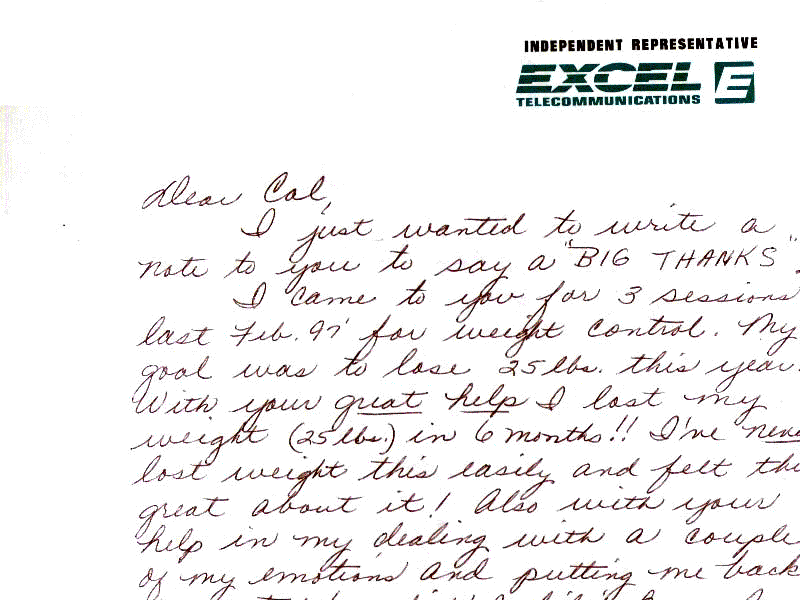 INDEPENDENT REPRESENTATIVE
EXCEL E
TELECOMMUNICATIONS
Dear Cal,
I just wanted to write a
note to you to say a "BIG THANKS".
I came to you for 3 sessions
last Feb. 97' for weight control. My
goal was to lose 25 lbs. this year.
With your great help I lost my
weight (25 lbs.) in 6 months!! I've never
lost weight this easily and felt this
great about it! Also with your
help in my dealing with a couple
of my emotions and putting me back